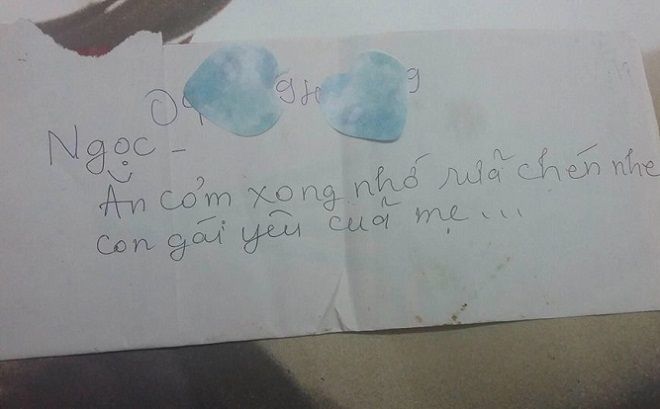 Ngọc -
Ăn cơm xong nhớ rửã chén nhe
con gái yêu cuã mẹ...